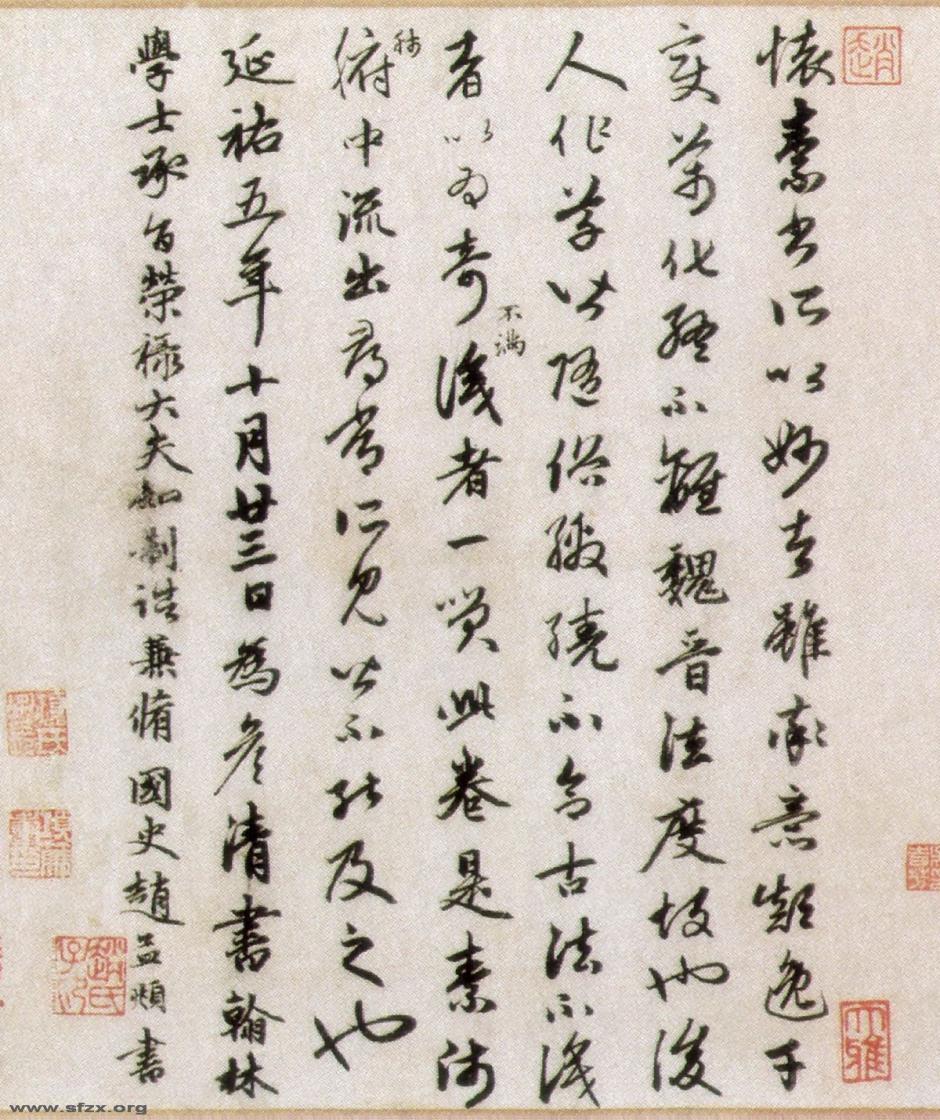 懷素書所以妙者雖率意顛逸千
變萬化終不離魏晉法度故也後
人作草皆隨俗繳繞不合古法不識
者以為奇不滿識者一笑此卷是素師
肺腑中流出尋常所見皆不能及之也
延祐五年十月廿三日為彥清書翰林
學士承旨榮祿大夫知制誥兼脩國史趙孟頫書
趙
大雅
趙氏子昂
www.sfzx.org